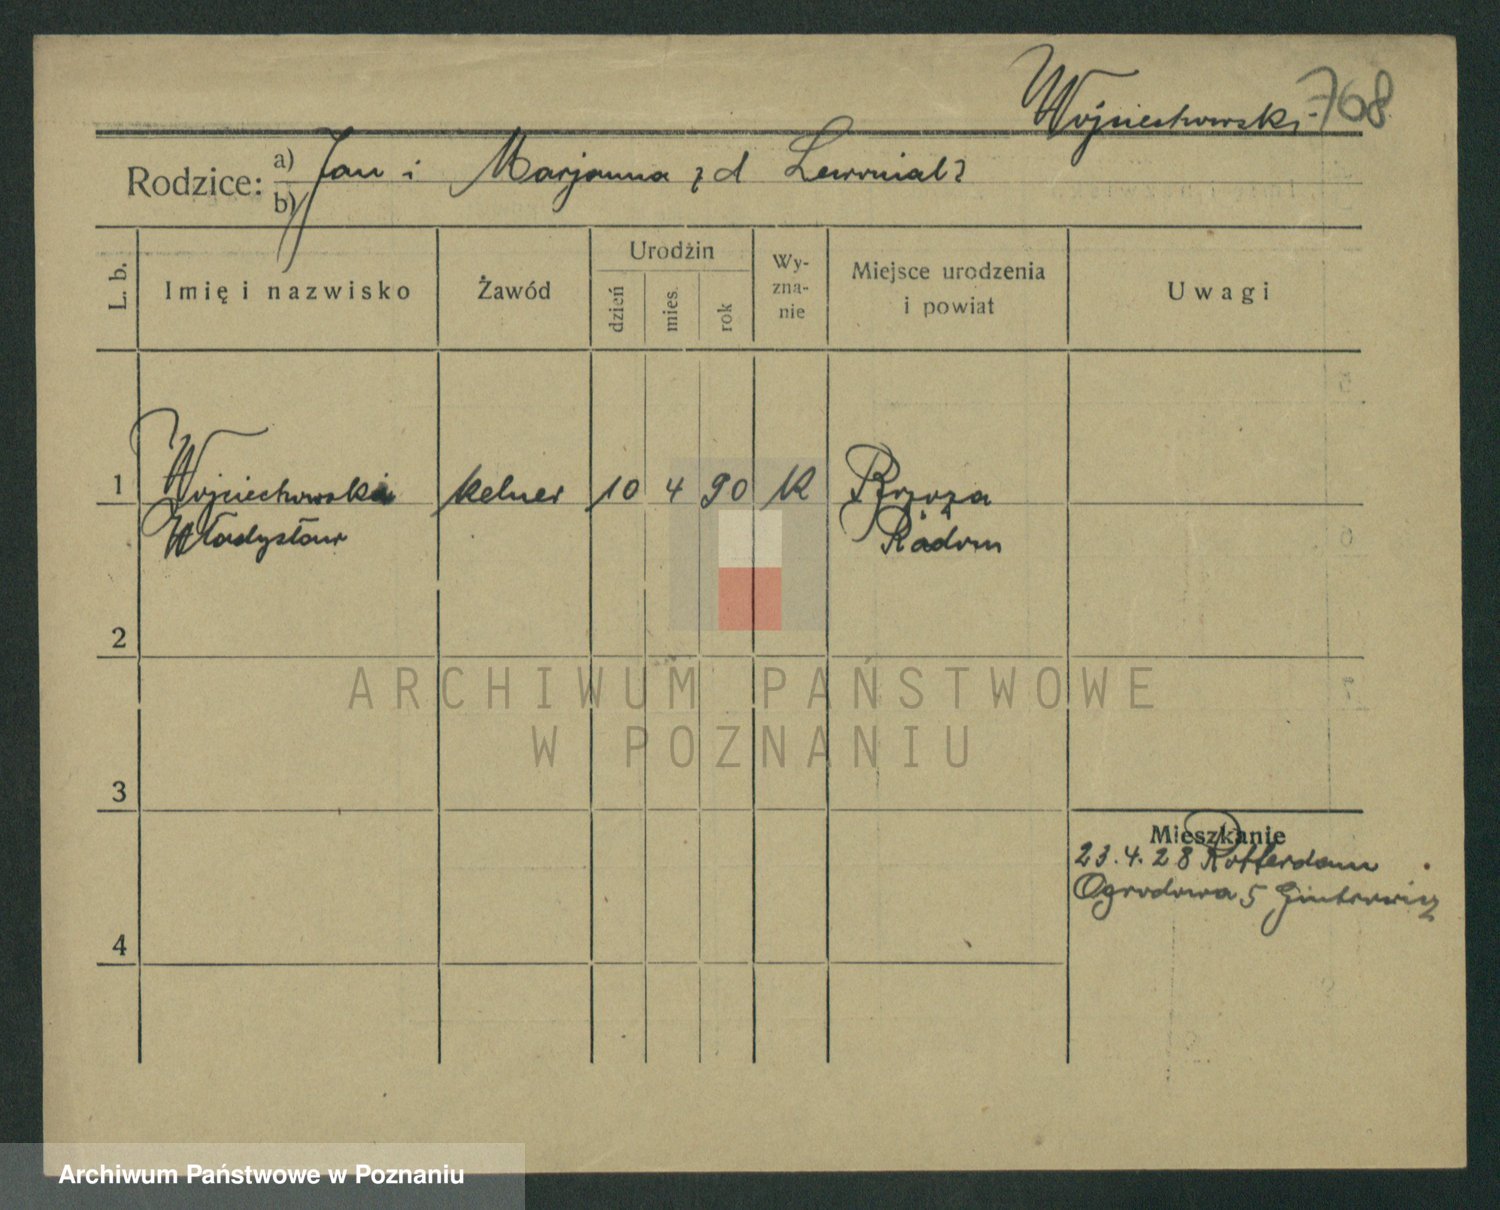 Wojciechowski 768
Rodzice: a) Jan i Marjanna z d
b)
L. b.
Imię i nazwisko
Zawód
Urodzin
dzień
mies.
rok
Wy-
zna-
nie
Miejsce urodzenia
i powiat
Uwagi
1 Wojciechowski kelner 10 4 90 K Brzoza
Władysław Radom
2
3
4
Mieszkanie
23.4.28 Rotterdam
Ogrodowa 5
ARCHIWUM PAŃSTWOWE
W POZNANIU
Archiwum Państwowe w Poznaniu